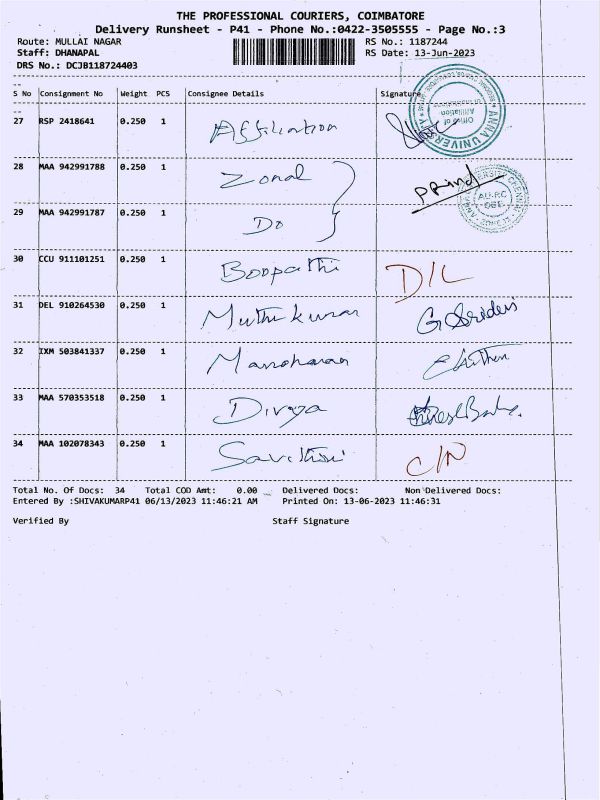 THE PROFESSIONAL COURIERS, COIMBATORE
Delivery Runsheet - P41 - Phone No.:0422-3505555 - Page No.:3
Route: MULLAI NAGAR RS No.: 1187244
Staff: DHANAPAL RS Date: 13-Jun-2023
DRS No.: DCJB118724403
S No Consignment No Weight PCS Consignee Details Signature
27 RSP 2418641 0.250 1 Affiliation
Office of
Affiliation
ANNA UNIVERSITY
28 MAA 942991788 0.250 1 Zonal
29 MAA 942991787 0.250 1 Do
30 CCU 911101251 0.250 1 Boopathi D/L
31 DEL 910264530 0.250 1 Muthukumar G. Sridevi
32 IXM 503841337 0.250 1 Manoharan
33 MAA 570353518 0.250 1 Divya
34 MAA 102078343 0.250 1 Savithri C/N
Total No. Of Docs: 34 Total COD Amt: 0.00 Delivered Docs: Non Delivered Docs:
Entered By :SHIVAKUMARP41 06/13/2023 11:46:21 AM Printed On: 13-06-2023 11:46:31
Verified By Staff Signature